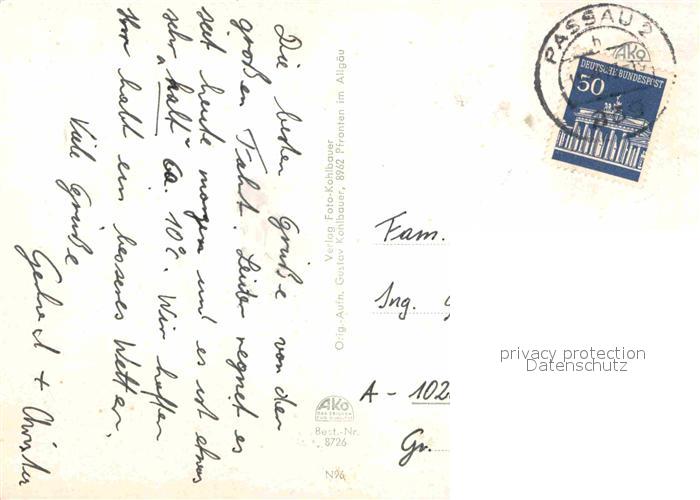 Die besten Grüße von der
großen Fahrt! Leider regnet es
seit heute morgen und es ist etwas
sehr "kalt" ca. 10°C. Wir hoffen
Ihr habt ein besseres Wetter.
Viele Grüße
Gerhard + Christer
Verlag Foto-Kohlbauer
Orig.-Aufn. Gustav Kohlbauer, 8962 Pfronten im Allgäu
AKO
Best.-Nr.
8726
N96
PASSAU 2
AKO
DEUTSCHE BUNDESPOST
50
Fam.
Ing.
A - 102
Gr.
privacy protection
Datenschutz